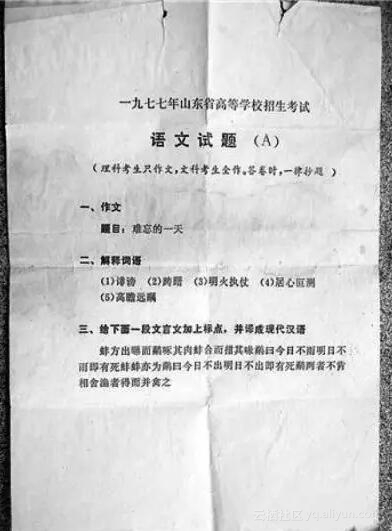 一九七七年山东省高等学校招生考试
语文试题 (A)
(理科考生只作文,文科考生全作。答卷时,一律抄题)
一、作文
题目：难忘的一天
二、解释词语
(1)诽谤 (2)踌躇 (3)明火执仗 (4)居心叵测
(5)高瞻远瞩
三、给下面一段文言文加上标点，并译成现代汉语
蚌方出曝而鹬啄其肉蚌合而箝其喙鹬曰今日不雨明日不
雨即有死蚌蚌亦为鹬曰今日不出明日不出即有死鹬两者不肯
相舍渔者得而并禽之
云栖社区 yq.aliyun.com